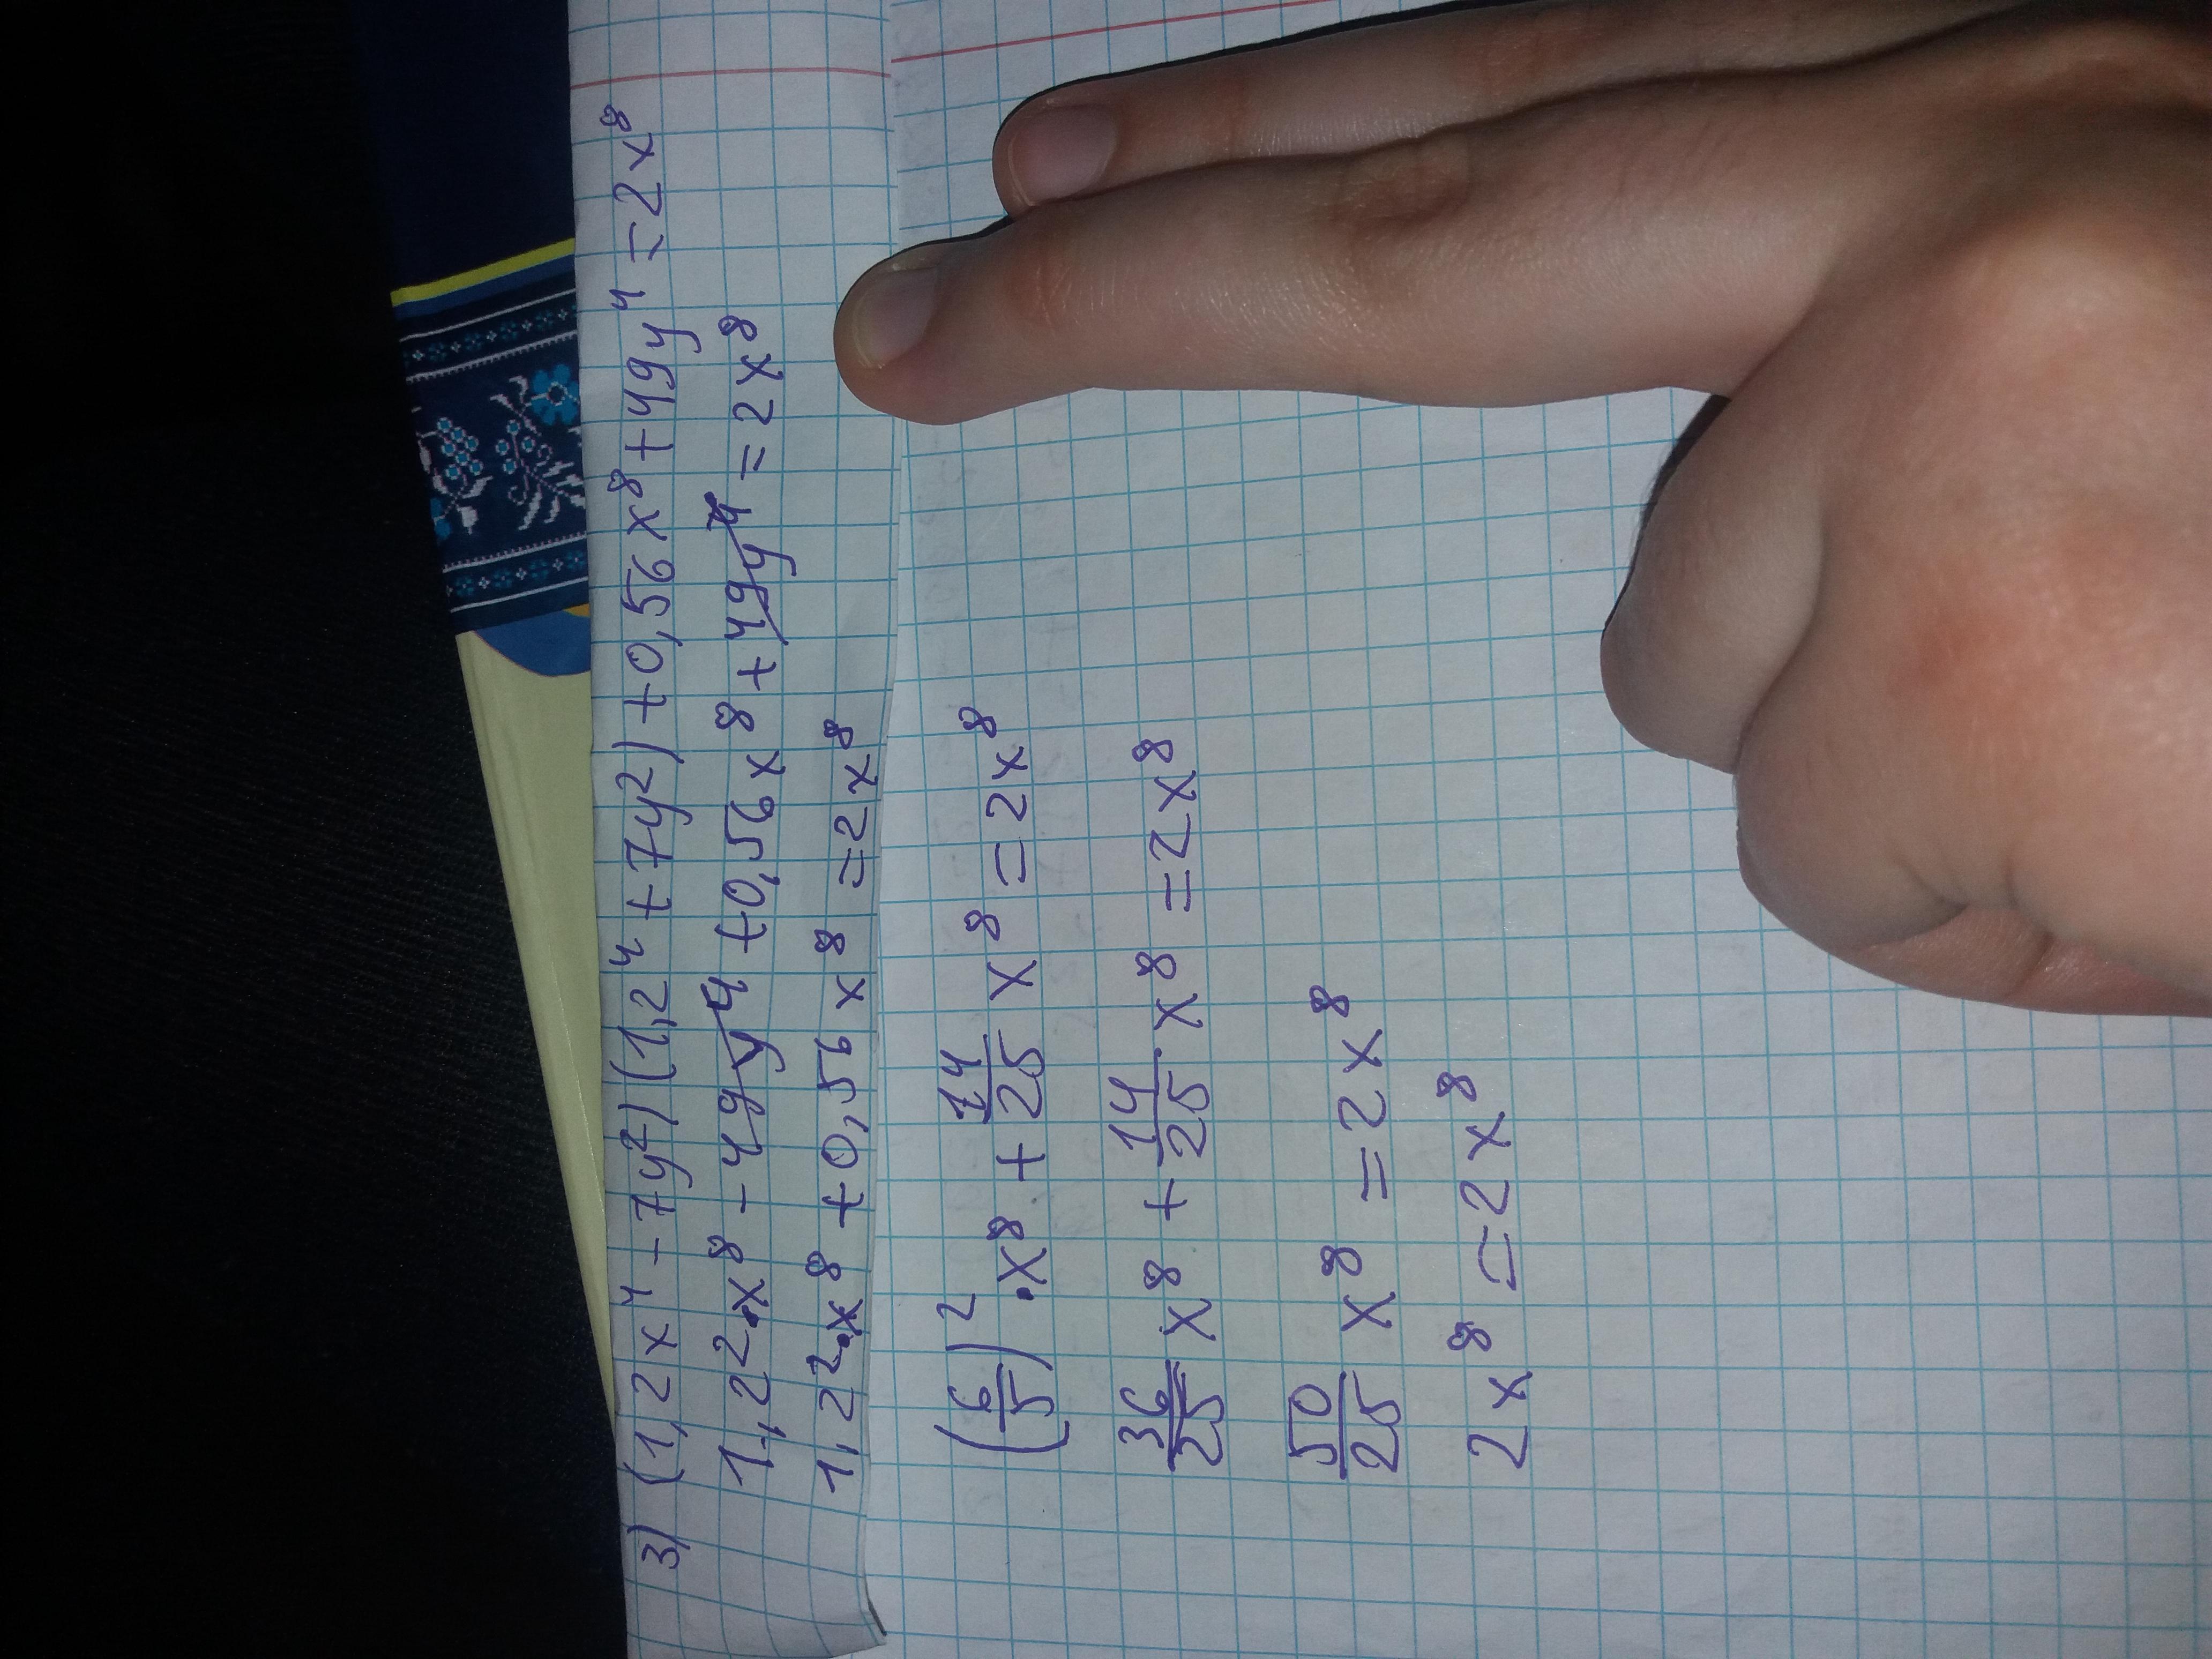 3) (1,2x⁴ - 7y²)(1,2⁴ + 7y²) + 0,56x⁸ + 49y⁴ = 2x⁸
1,2²·x⁸ - 49y⁴ + 0,56x⁸ + 49y⁴ = 2x⁸
1,2²·x⁸ + 0,56x⁸ = 2x⁸
(6/5)²·x⁸ + 14/25 x⁸ = 2x⁸
36/25 x⁸ + 14/25 x⁸ = 2x⁸
50/25 x⁸ = 2x⁸
2x⁸ = 2x⁸